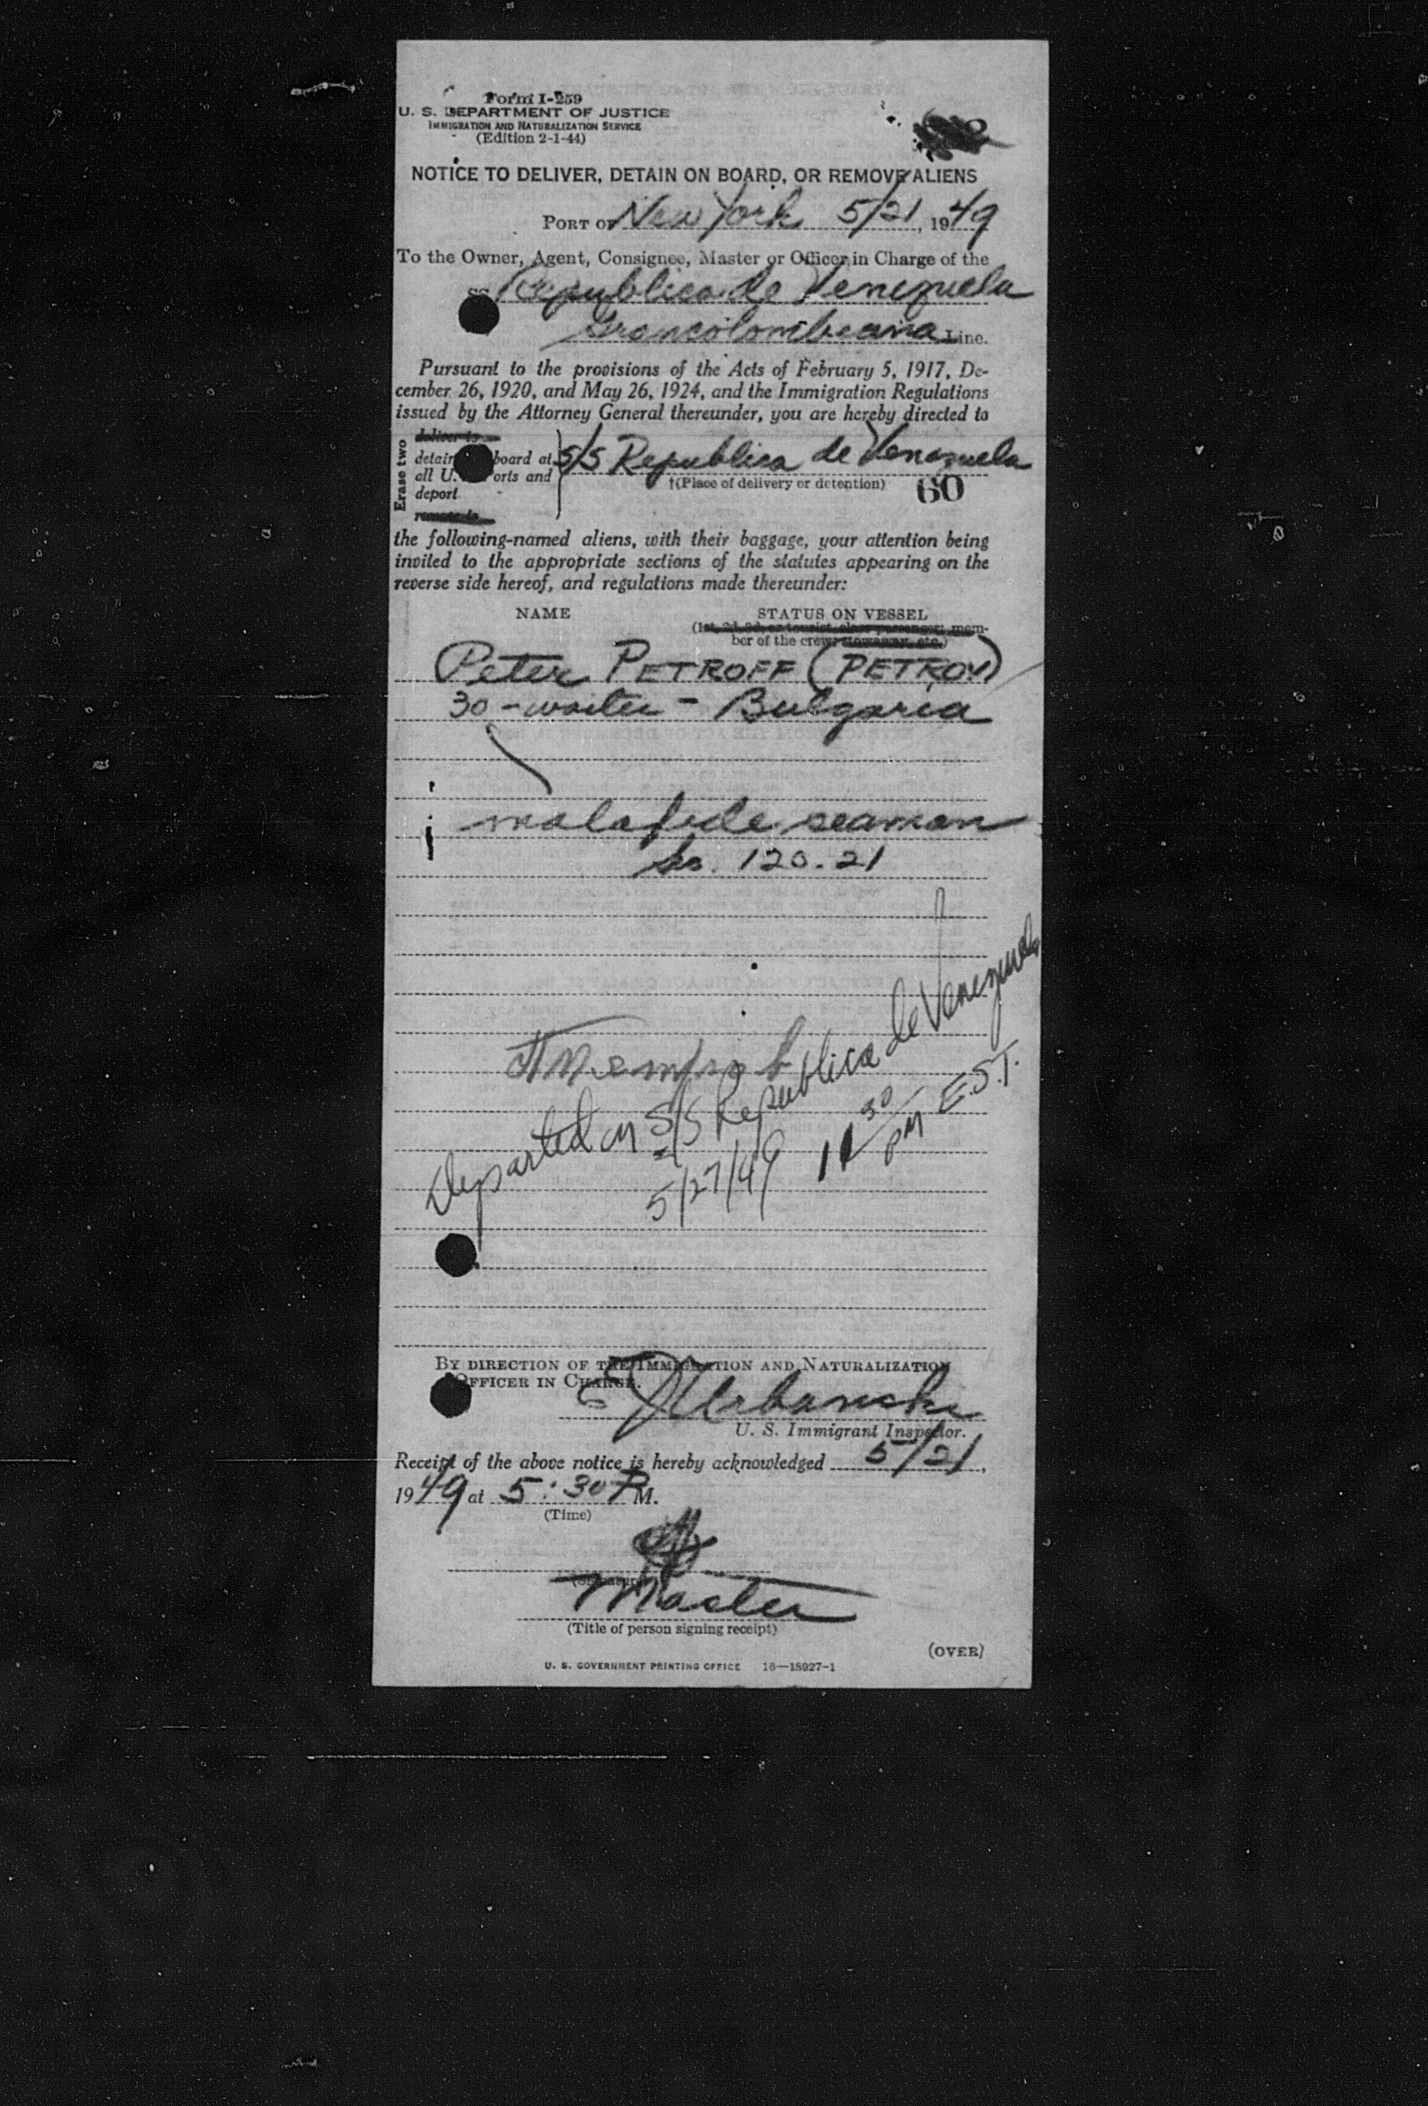 Form I-259
U. S. DEPARTMENT OF JUSTICE
IMMIGRATION AND NATURALIZATION SERVICE
(Edition 2-1-44)
NOTICE TO DELIVER, DETAIN ON BOARD, OR REMOVE ALIENS
PORT OF New York 5/21, 1949
To the Owner, Agent, Consignee, Master or Officer in Charge of the
SS Republica de Venezuela
Grancolombeana Line.
Pursuant to the provisions of the Acts of February 5, 1917, De-
cember 26, 1920, and May 26, 1924, and the Immigration Regulations
issued by the Attorney General thereunder, you are hereby directed to
Erase two
deliver to
detain board at S/S Republica de Venezuela
all U. orts and †(Place of delivery or detention) 60
deport
remove to
the following-named aliens, with their baggage, your attention being
invited to the appropriate sections of the statutes appearing on the
reverse side hereof, and regulations made thereunder:
NAME STATUS ON VESSEL
(1st, 2d, 3d, or tourist class passenger; mem-
ber of the crew; stowaway, etc.)
Peter PETROFF (PETROV)
30 - waiter - Bulgaria
malafide seaman
120.21
Departed on S/S Republica de Venezuela
5/27/49 11 30 PM E.S.T.
BY DIRECTION OF THE IMMIGRATION AND NATURALIZATION
OFFICER IN CHARGE.
Urbanski
U. S. Immigrant Inspector.
Receipt of the above notice is hereby acknowledged 5/21,
1949 at 5:30 P M.
(Time)
(Signature)
Master
(Title of person signing receipt)
(OVER)
U. S. GOVERNMENT PRINTING OFFICE 16—18927-1